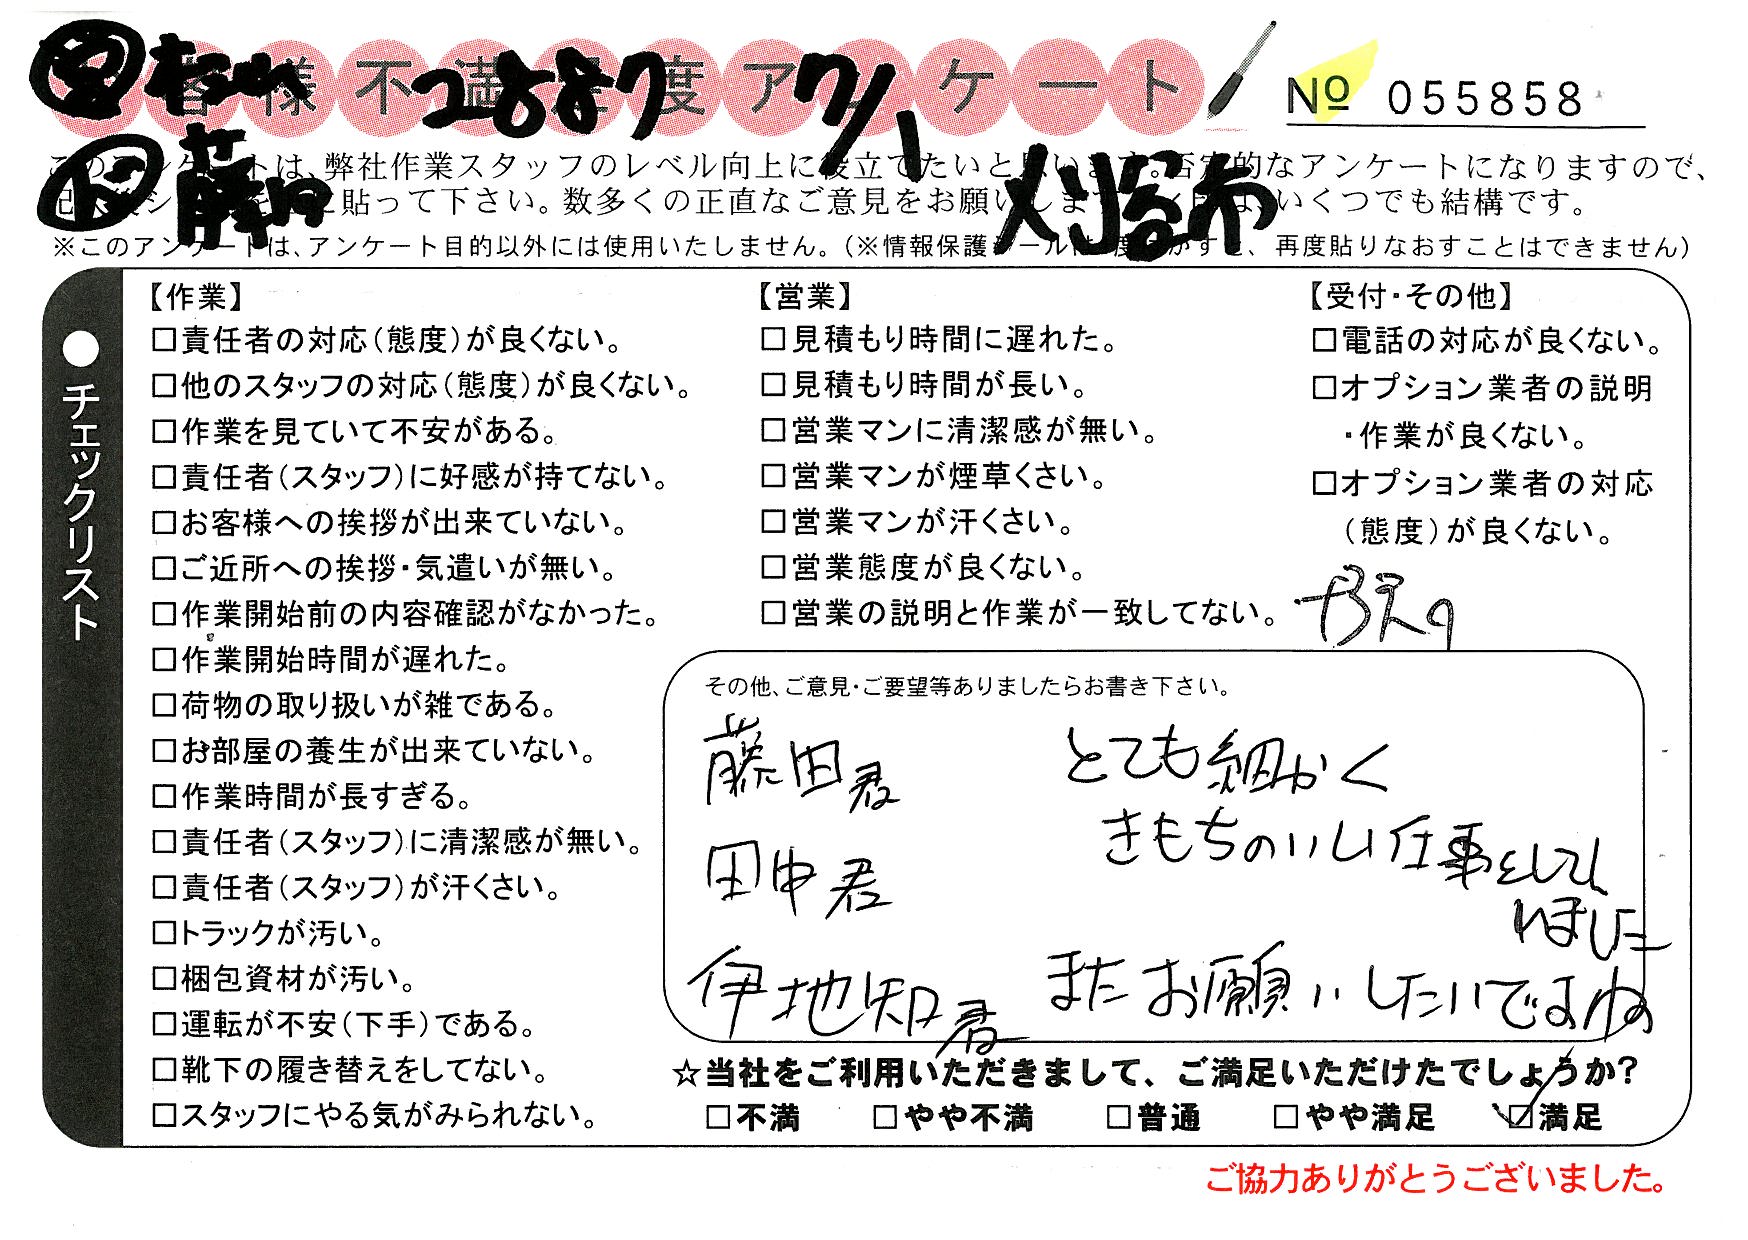 お客様不満足度アンケート
2887 7/1
№ 055858
このアンケートは、弊社作業スタッフのレベル向上に役立てたいと思います。否定的なアンケートになりますので、
刈谷市
貼って下さい。数多くの正直なご意見をお願いします いくつでも結構です。
※このアンケートは、アンケート目的以外には使用いたしません。(※情報保護シールは1度はがすと、再度貼りなおすことはできません)
●チェックリスト
【作業】
□責任者の対応(態度)が良くない。
□他のスタッフの対応(態度)が良くない。
□作業を見ていて不安がある。
□責任者(スタッフ)に好感が持てない。
□お客様への挨拶が出来ていない。
□ご近所への挨拶・気遣いが無い。
□作業開始前の内容確認がなかった。
□作業開始時間が遅れた。
□荷物の取り扱いが雑である。
□お部屋の養生が出来ていない。
□作業時間が長すぎる。
□責任者(スタッフ)に清潔感が無い。
□責任者(スタッフ)が汗くさい。
□トラックが汚い。
□梱包資材が汚い。
□運転が不安(下手)である。
□靴下の履き替えをしてない。
□スタッフにやる気がみられない。
【営業】
□見積もり時間に遅れた。
□見積もり時間が長い。
□営業マンに清潔感が無い。
□営業マンが煙草くさい。
□営業マンが汗くさい。
□営業態度が良くない。
□営業の説明と作業が一致してない。
【受付・その他】
□電話の対応が良くない。
□オプション業者の説明
・作業が良くない。
□オプション業者の対応
(態度)が良くない。
その他、ご意見・ご要望等ありましたらお書き下さい。
藤田君 とても細かく
田中君 きもちのいい仕事をしてし
いました
伊地知君 またお願いしたいですね
☆当社をご利用いただきまして、ご満足いただけたでしょうか?
□不満 □やや不満 □普通 □やや満足 ☑満足
ご協力ありがとうございました。